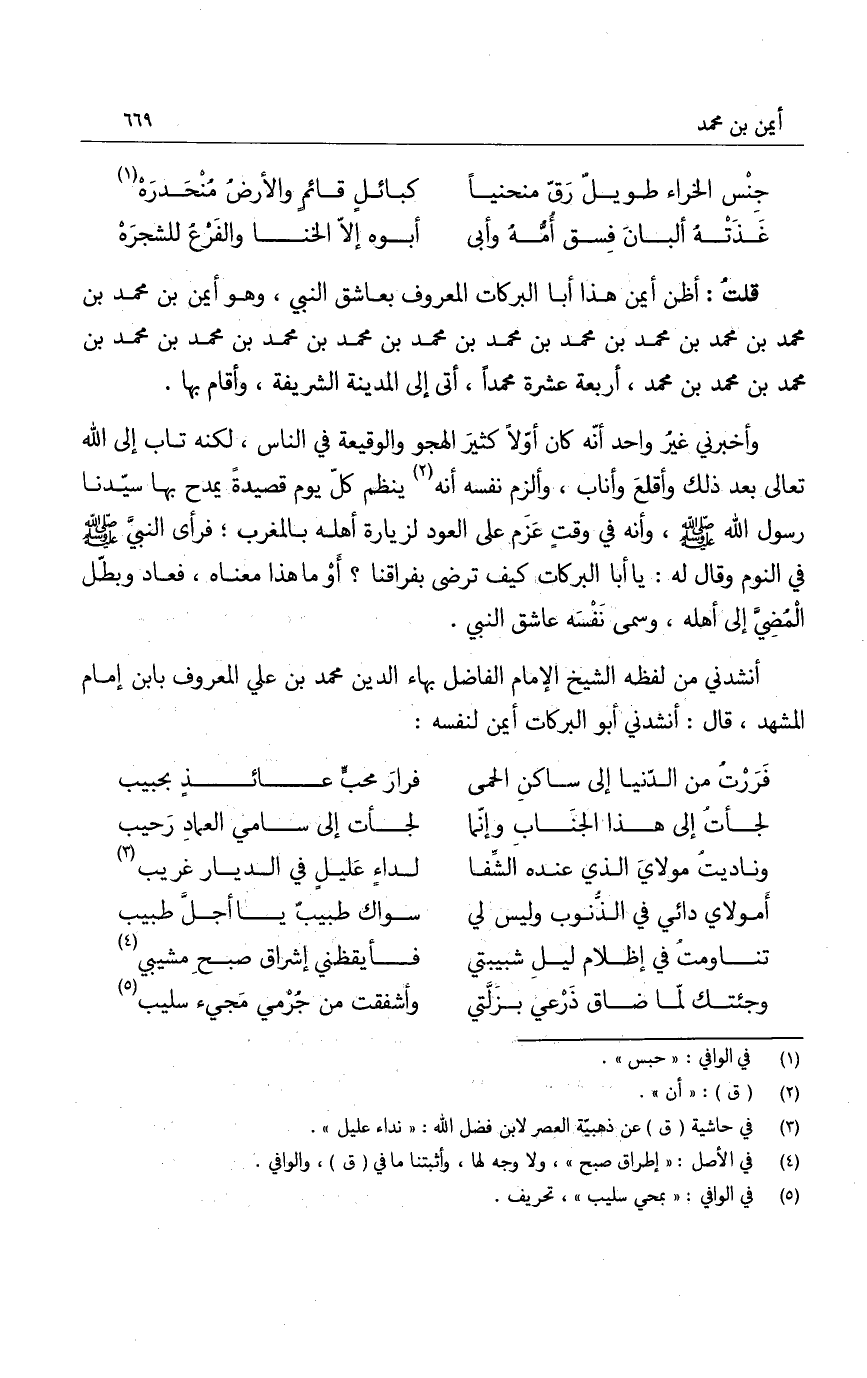 أيمن بن محمد ٦٦٩
جنْس الخراء طويلٌ رَقّ منحنياً كبائلٍ قائمٍ والأرضُ مُنْحَدرَهْ(١)
غَذَتْهُ ألبانَ فِسق أُمُّهُ وأبى أبوه إلاّ الخنا والفَرْعُ للشجرَهْ
قلتُ : أظن أيمن هذا أبا البركات المعروف بعاشق النبي ، وهو أيمن بن محمد بن
محمد بن محمد بن محمد بن محمد بن محمد بن محمد بن محمد بن محمد بن محمد بن محمد بن
محمد بن محمد بن محمد ، أربعة عشرة محمداً ، أتى إلى المدينة الشريفة ، وأقام بها .
وأخبرني غيرُ واحد أنّه كان أوّلاً كثيرَ الهجو والوقيعة في الناس ، لكنه تاب إلى الله
تعالى بعد ذلك وأقلعَ وأناب ، وألزم نفسه أنه(٢) ينظم كلّ يوم قصيدةً يمدح بها سيّدنا
رسول الله ﷺ ، وأنه في وقتٍ عَزَم على العود لزيارة أهله بالمغرب ؛ فرأى النبيَّ ﷺ
في النوم وقال له : يا أبا البركات كيف ترضى بفراقنا ؟ أوْ ما هذا معناه ، فعاد وبطّل
الْمُضِيَّ إلى أهله ، وسمى نَفْسَه عاشق النبي .
أنشدني من لفظه الشيخ الإمام الفاضل بهاء الدين محمد بن علي المعروف بابن إمام
المشهد ، قال : أنشدني أبو البركات أيمن لنفسه :
فَرَرْتُ من الدّنيا إلى ساكنِ الحمى فرارَ محبٍّ عائذٍ بحبيب
لجأتُ إلى هذا الجنَاب وإنّما لجأت إلى سامي العماد رَحيب
وناديتُ مولايَ الذي عنده الشِّفا لداءٍ عَليلٍ في الديار غريب(٣)
أمولاي دائي في الذُّنوب وليس لي سواك طبيبٌ يا أجلَّ طبيب
تناومتُ في إظلام ليلِ شبيبتي فأيقظني إشراق صبحِ مشيبي(٤)
وجئتك لمّا ضاق ذَرْعي بزَلَّتي وأشفقت من جُرْمي مَجيء سليب(٥)
(١) في الوافي : « حبس » .
(٢) ( ق ) : « أن » .
(٣) في حاشية ( ق ) عن ذهبيّة العصر لابن فضل الله : « نداء عليل » .
(٤) في الأصل : « إطراق صبح » ، ولا وجه لها ، وأثبتنا ما في ( ق ) ، والوافي .
(٥) في الوافي : « بمحي سليب » ، تحريف .